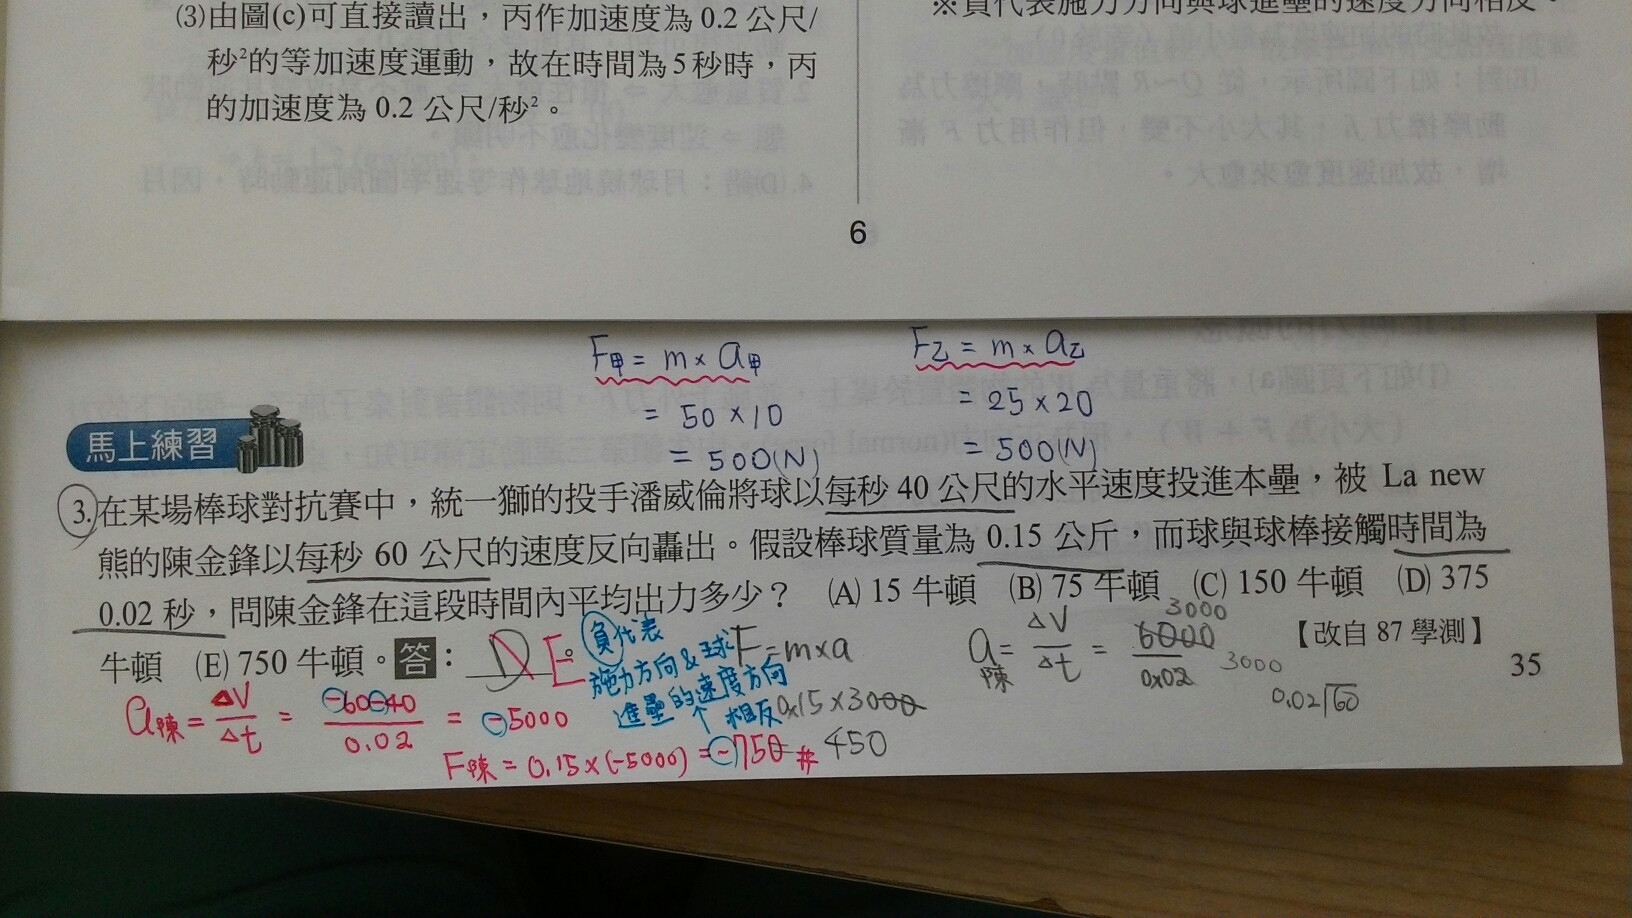 (3)由圖(c)可直接讀出，丙作加速度為 0.2 公尺/
秒²的等加速度運動，故在時間為 5 秒時，丙
的加速度為 0.2 公尺/秒²。
※負代表施力方向與球進壘的速度方向相反。
6
F甲 = m × a甲
= 50 × 10
= 500(N)
F乙 = m × a乙
= 25 × 20
= 500(N)
馬上練習
3.在某場棒球對抗賽中，統一獅的投手潘威倫將球以每秒 40 公尺的水平速度投進本壘，被 La new
熊的陳金鋒以每秒 60 公尺的速度反向轟出。假設棒球質量為 0.15 公斤，而球與球棒接觸時間為
0.02 秒，問陳金鋒在這段時間內平均出力多少？ (A) 15 牛頓 (B) 75 牛頓 (C) 150 牛頓 (D) 375
牛頓 (E) 750 牛頓。答： D E。
【改自 87 學測】
35
負代表
施力方向&球
進壘的速度方向
相反
F = m×a
0.15×3000
450
a陳 = ΔV/Δt = 6000/0.02
3000
3000
0.02 60
a陳 = ΔV/Δt = -60-40/0.02 = -5000
F陳 = 0.15×(-5000) = -750 #